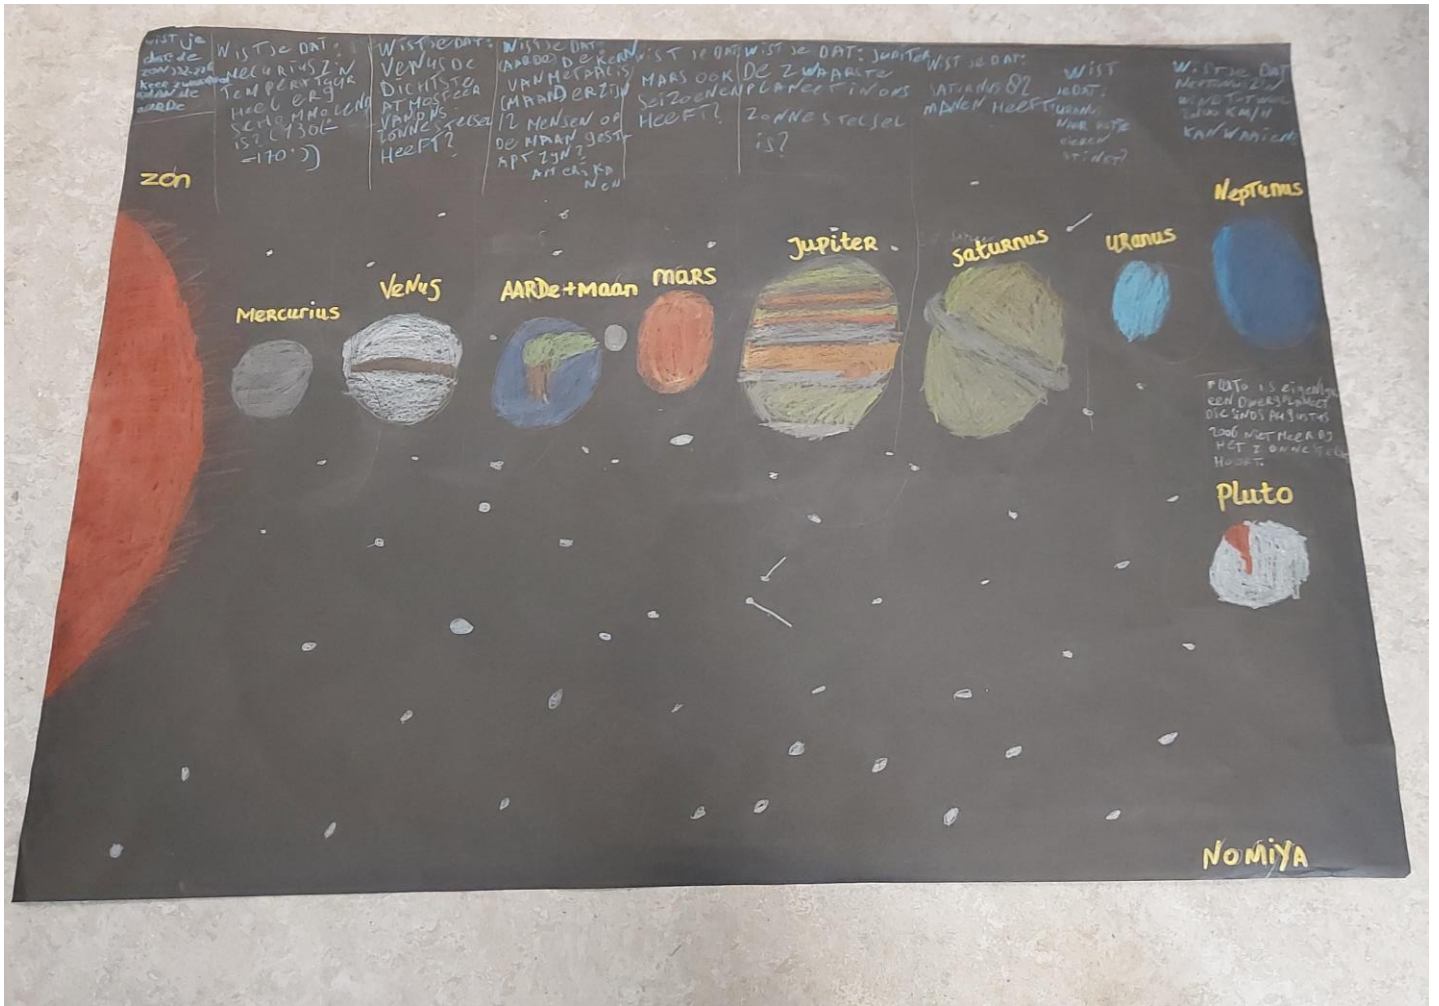 wist je
dat de
zon 332.
keer zwaarder
dan de
aarde
WiSTJe DAT:
MeCURiUS Z'N
TeMPERATUUR
HeeL eRg
is? (430t-
-170°))
WiSTJe DAT:
VeNUS De
DiCHTSTe
ATMOSFEER
VAN ONS
ZONNESTELSEL
HeeFT?
WiSTJe DAT:
(AARDe) De KERN
VAN MeTAAL iS
(MAAN) DERZIJN
12 MENSEN OP
De MAAN geST-
APT ZIJN?
AMERiKA
NEN
WiST Je DAT
MARS OOK
SeiZOeNEN
HeeFT?
WiST Je DAT: JUPiTER
De ZWAARSTe
PLANeeT iN ONS
ZONNeSTeLSeL
is?
WiST Je DAT:
SATURNUS 82
MANEN HeeFT
WiST
JeDAT:
URANUS
NAAR ROTTE
eieren
STiNKT?
WiSTJe DAT
NEPTUNUS ZiJN
WiND TOT WEL
2000 KM/H
KAN WAAieN
zon
MeRCuRius
VeNus
AARDe+Maan
MARS
Jupiter
Saturnus
URanus
NepTunus
PLUTO is eigenlijk
EEN DWERGPLANEET
DIE SINDS AUGUSTUS
2006 NieT MeeR Bij
HeT ZONNeSTeLSeL
HOORT.
Pluto
NOMiYA